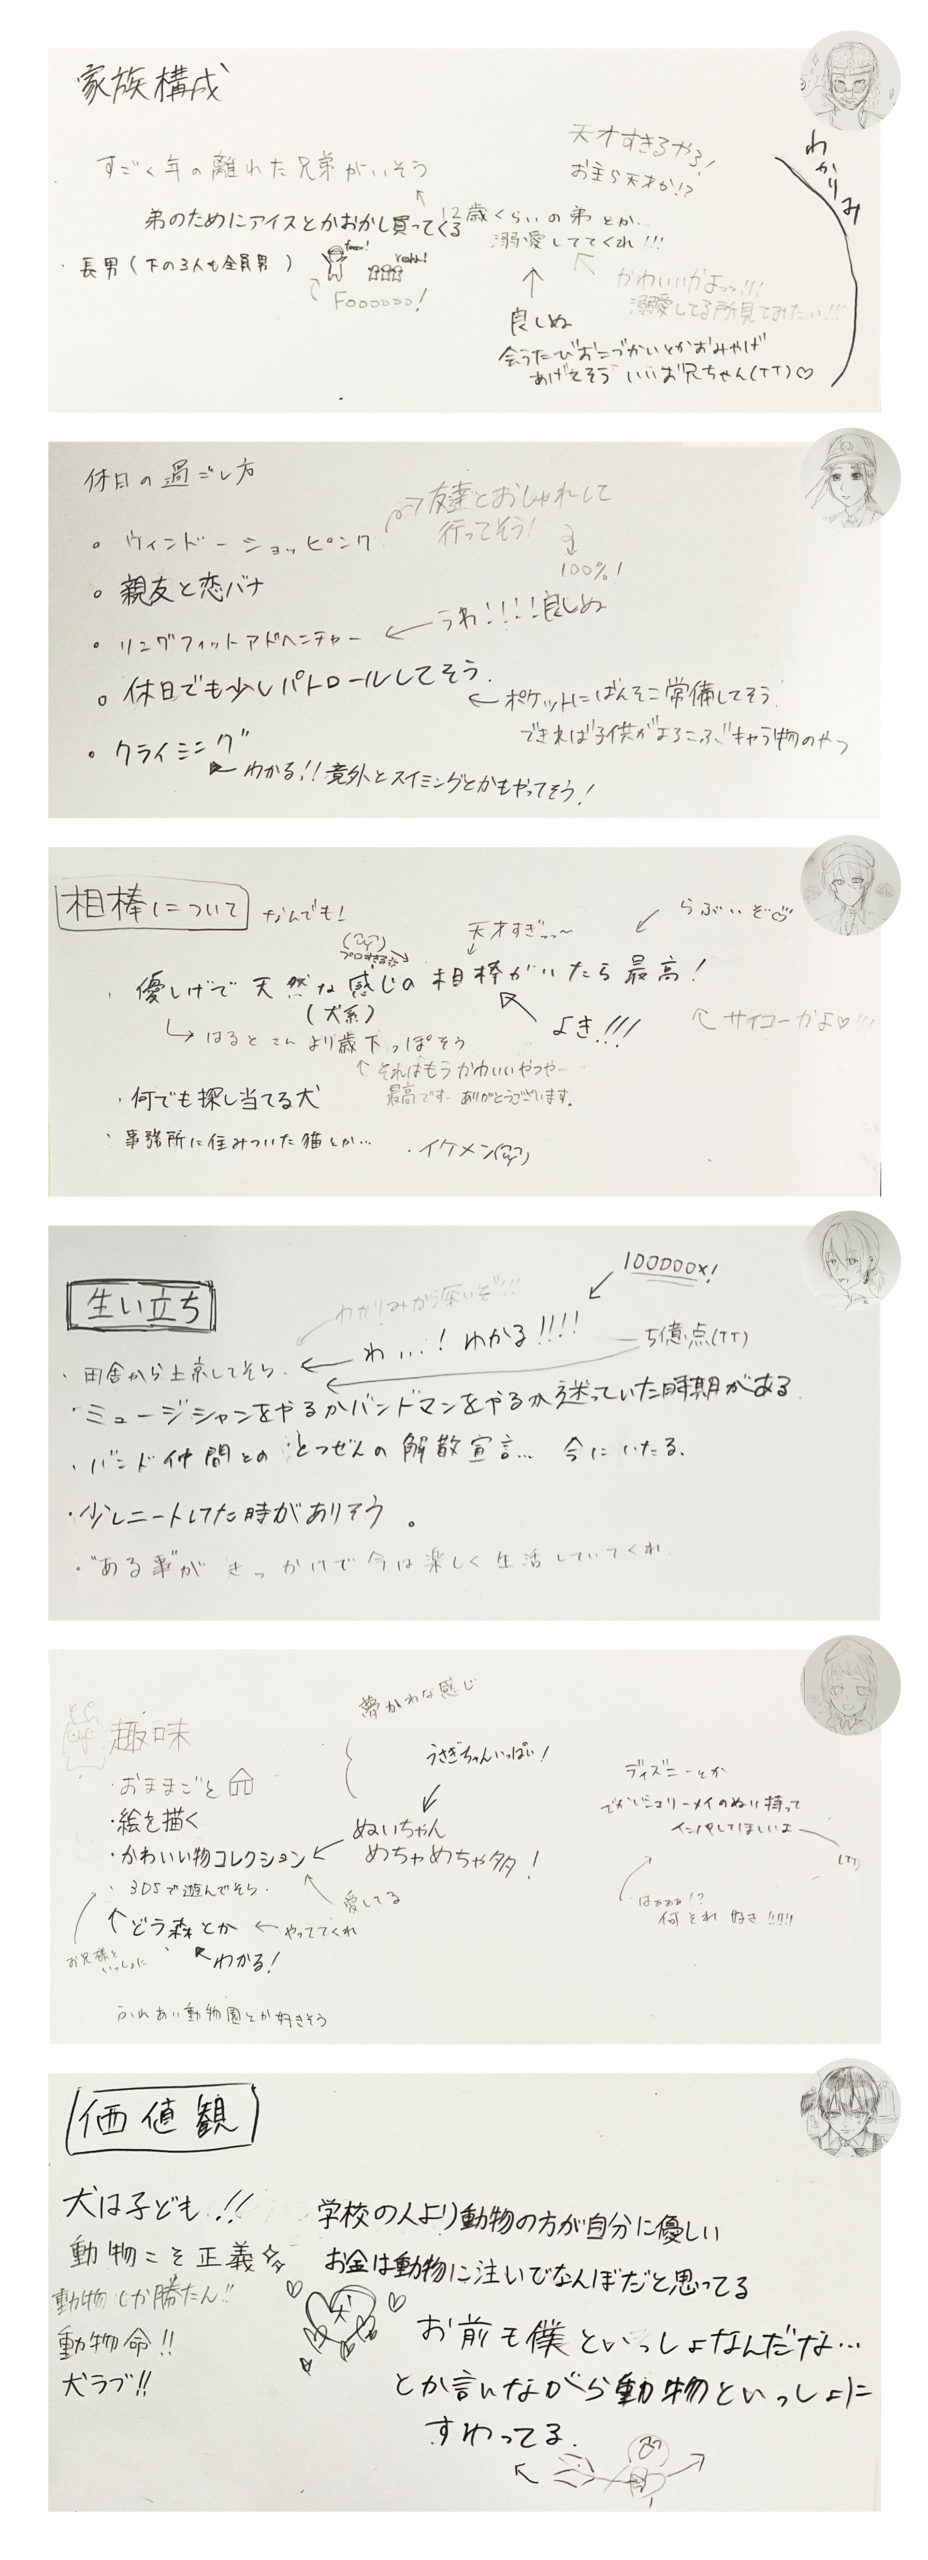 家族構成
すごく年の離れた兄弟がいそう
天才すぎるやろ!
お主ら天才か!?
わかりみ
弟のためにアイスとかおかし買ってくる
12歳くらいの弟とか…
溺愛しててくれ!!!
・長男(下の3人も全員男)
fooo!
yeahh!
FOOOOOO!
かわいいかよっっ!!!
溺愛してる所見てみたい!!!
良しぬ
会うたびおこづかいとかおみやげ
あげてそう いいお兄ちゃん(TT)♡
休日の過ごし方
・ウィンドーショッピング
友達とおしゃれして
行ってそう!
100%!
・親友と恋バナ
・リングフィットアドベンチャー
うわ!!!!良しぬ
・休日でも少しパトロールしてそう.
ポケットにばんそこ常備してそう.
できれば子供がよろこぶキャラ物のやつ
・クライミング
わかる!!意外とスイミングとかもやってそう!
相棒について
なんでも!
天才すぎっっ〜
らぶいぞ♡
プロすぎる
・優しげで天然な感じの相棒がいたら最高!
(犬系)
よき!!!
サイコーかよ♡!!!
はるとさんより歳下っぽそう
それはもうかわいいやつやー
最高ですー ありがとうございます.
・何でも探し当てる犬
・事務所に住みついた猫とか…
・イケメン
生い立ち
100000x!
わかりみがう深いぞ!!!
わ…! わかる!!!!
5億点(TT)
・田舎から上京してそう.
・ミュージシャンをやるかバンドマンをやるか迷っていた時期がある.
・バンド仲間とのとつぜんの解散宣言… 今にいたる.
・少しニートしてた時がありそう。
・"ある事"がきっかけで今は楽しく生活していてくれ
夢かわな感じ
趣味
うさぎちゃんいっぱい!
・おままごと
・絵を描く
・かわいい物コレクション
ぬいちゃん
めちゃめちゃ多!
ディズニーとか
でかいシェリーメイのぬい持って
インパしてほしいよ
(TT)
・3DSで遊んでそう.
愛してる
どう森とか
やっててくれ
はぁぁぁ!?
何それ 好き!!!!!
お兄様と
いっしょに
わかる!
ふれあい動物園とか好きそう
価値観
犬は子ども!!
動物こそ正義
動物しか勝たん!!
動物命!!
犬ラブ!!
学校の人より動物の方が自分に優しい
お金は動物に注いでなんぼだと思ってる
犬
お前も僕といっしょなんだな…
とか言いながら動物といっしょに
すわってる.